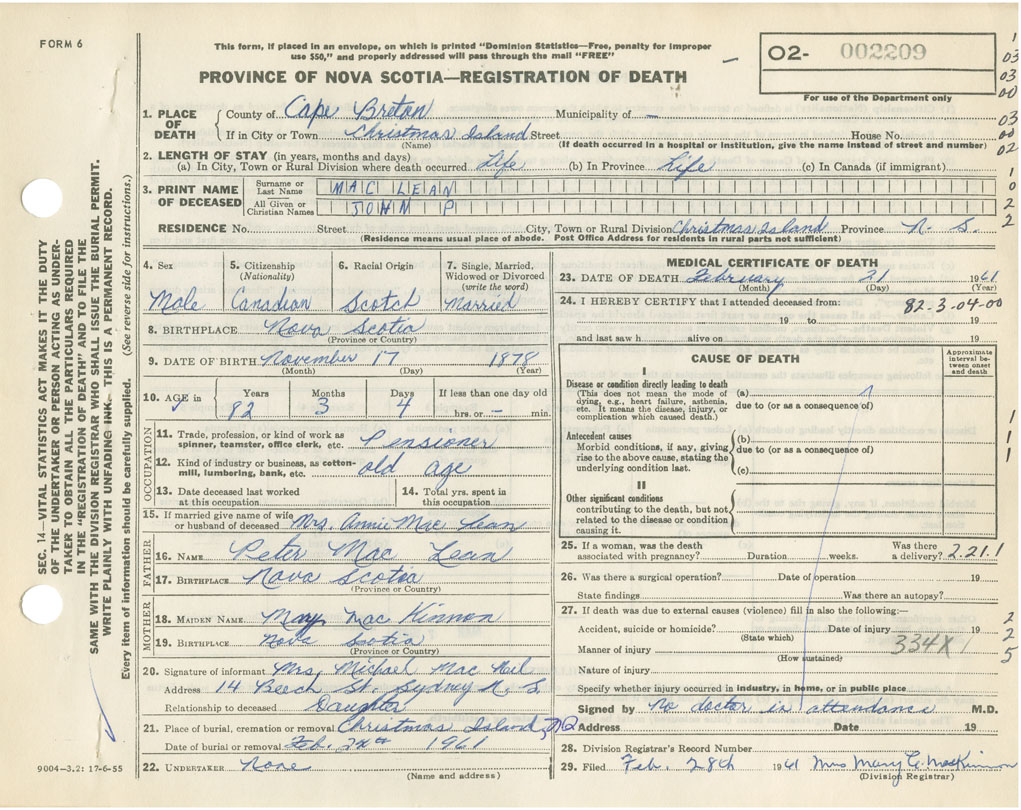 FORM 6
This form, if placed in an envelope, on which is printed "Dominion Statistics—Free, penalty for improper
use $50," and properly addressed will pass through the mail "FREE"
PROVINCE OF NOVA SCOTIA—REGISTRATION OF DEATH
O2- 002209
For use of the Department only
1
03
03
00
03
00
02
1
0
2
2
1. PLACE OF DEATH
County of Cape Breton Municipality of —
If in City or Town Christmas Island Street House No.
(Name) (If death occurred in a hospital or institution, give the name instead of street and number)
2. LENGTH OF STAY (in years, months and days)
(a) In City, Town or Rural Division where death occurred Life (b) In Province Life (c) In Canada (if immigrant)
3. PRINT NAME OF DECEASED
Surname or Last Name MAC LEAN
All Given or Christian Names JOHN P
RESIDENCE No. Street City, Town or Rural Division Christmas Island Province N. S.
(Residence means usual place of abode. Post Office Address for residents in rural parts not sufficient)
4. Sex 5. Citizenship (Nationality) 6. Racial Origin 7. Single, Married, Widowed or Divorced (write the word)
Male Canadian Scotch Married
8. BIRTHPLACE Nova Scotia
(Province or Country)
9. DATE OF BIRTH November 17 1878
(Month) (Day) (Year)
10. AGE in Years Months Days If less than one day old
82 3 4 hrs. or — min.
OCCUPATION
11. Trade, profession, or kind of work as
spinner, teamster, office clerk, etc. Pensioner
12. Kind of industry or business, as cotton-
mill, lumbering, bank, etc. old age
13. Date deceased last worked
at this occupation
14. Total yrs. spent in
this occupation
15. If married give name of wife
or husband of deceased Mrs. Annie Mac Lean
FATHER
16. NAME Peter Mac Lean
17. BIRTHPLACE Nova Scotia
(Province or Country)
MOTHER
18. MAIDEN NAME Mary Mac Kinnon
19. BIRTHPLACE Nova Scotia
(Province or Country)
20. Signature of informant Mrs, Michael Mac Neil
Address 14 Beech St. Sydney N. S.
Relationship to deceased Daughter
21. Place of burial, cremation or removal Christmas Island,
Date of burial or removal Feb. 1961
22. UNDERTAKER None
(Name and address)
MEDICAL CERTIFICATE OF DEATH
23. DATE OF DEATH February 21 1961
(Month) (Day) (Year)
24. I HEREBY CERTIFY that I attended deceased from: 82-3-04-00
19 to 19
and last saw h alive on 19
CAUSE OF DEATH
Approximate interval be-
tween onset and death
I
Disease or condition directly leading to death
(This does not mean the mode of
dying, e.g., heart failure, asthenia,
etc. It means the disease, injury, or
complication which caused death.)
(a)
due to (or as a consequence of)
Antecedent causes
Morbid conditions, if any, giving
rise to the above cause, stating the
underlying condition last.
(b)
due to (or as a consequence of)
(c)
II
Other significant conditions
contributing to the death, but not
related to the disease or condition
causing it.
1
1
1
25. If a woman, was the death
associated with pregnancy? Duration weeks. Was there a delivery? 2.21.1
26. Was there a surgical operation? Date of operation 19
State findings Was there an autopsy?
27. If death was due to external causes (violence) fill in also the following:—
Accident, suicide or homicide? Date of injury 19
(State which)
Manner of injury 334X
(How sustained)
Nature of injury
Specify whether injury occurred in industry, in home, or in public place
2
2
5
Signed by No doctor in attendance M.D.
Address Date 19
28. Division Registrar's Record Number
29. Filed Feb. 28th 1961 Mrs Mary C. MacKinnon
(Division Registrar)
SEC. 14—VITAL STATISTICS ACT MAKES IT THE DUTY
OF THE UNDERTAKER OR PERSON ACTING AS UNDER-
TAKER TO OBTAIN ALL THE PARTICULARS REQUIRED
IN THE "REGISTRATION OF DEATH" AND TO FILE THE
SAME WITH THE DIVISION REGISTRAR WHO SHALL ISSUE THE BURIAL PERMIT.
WRITE PLAINLY WITH UNFADING INK. THIS IS A PERMANENT RECORD.
Every item of information should be carefully supplied. (See reverse side for instructions.)
9004-3.2: 17-6-55